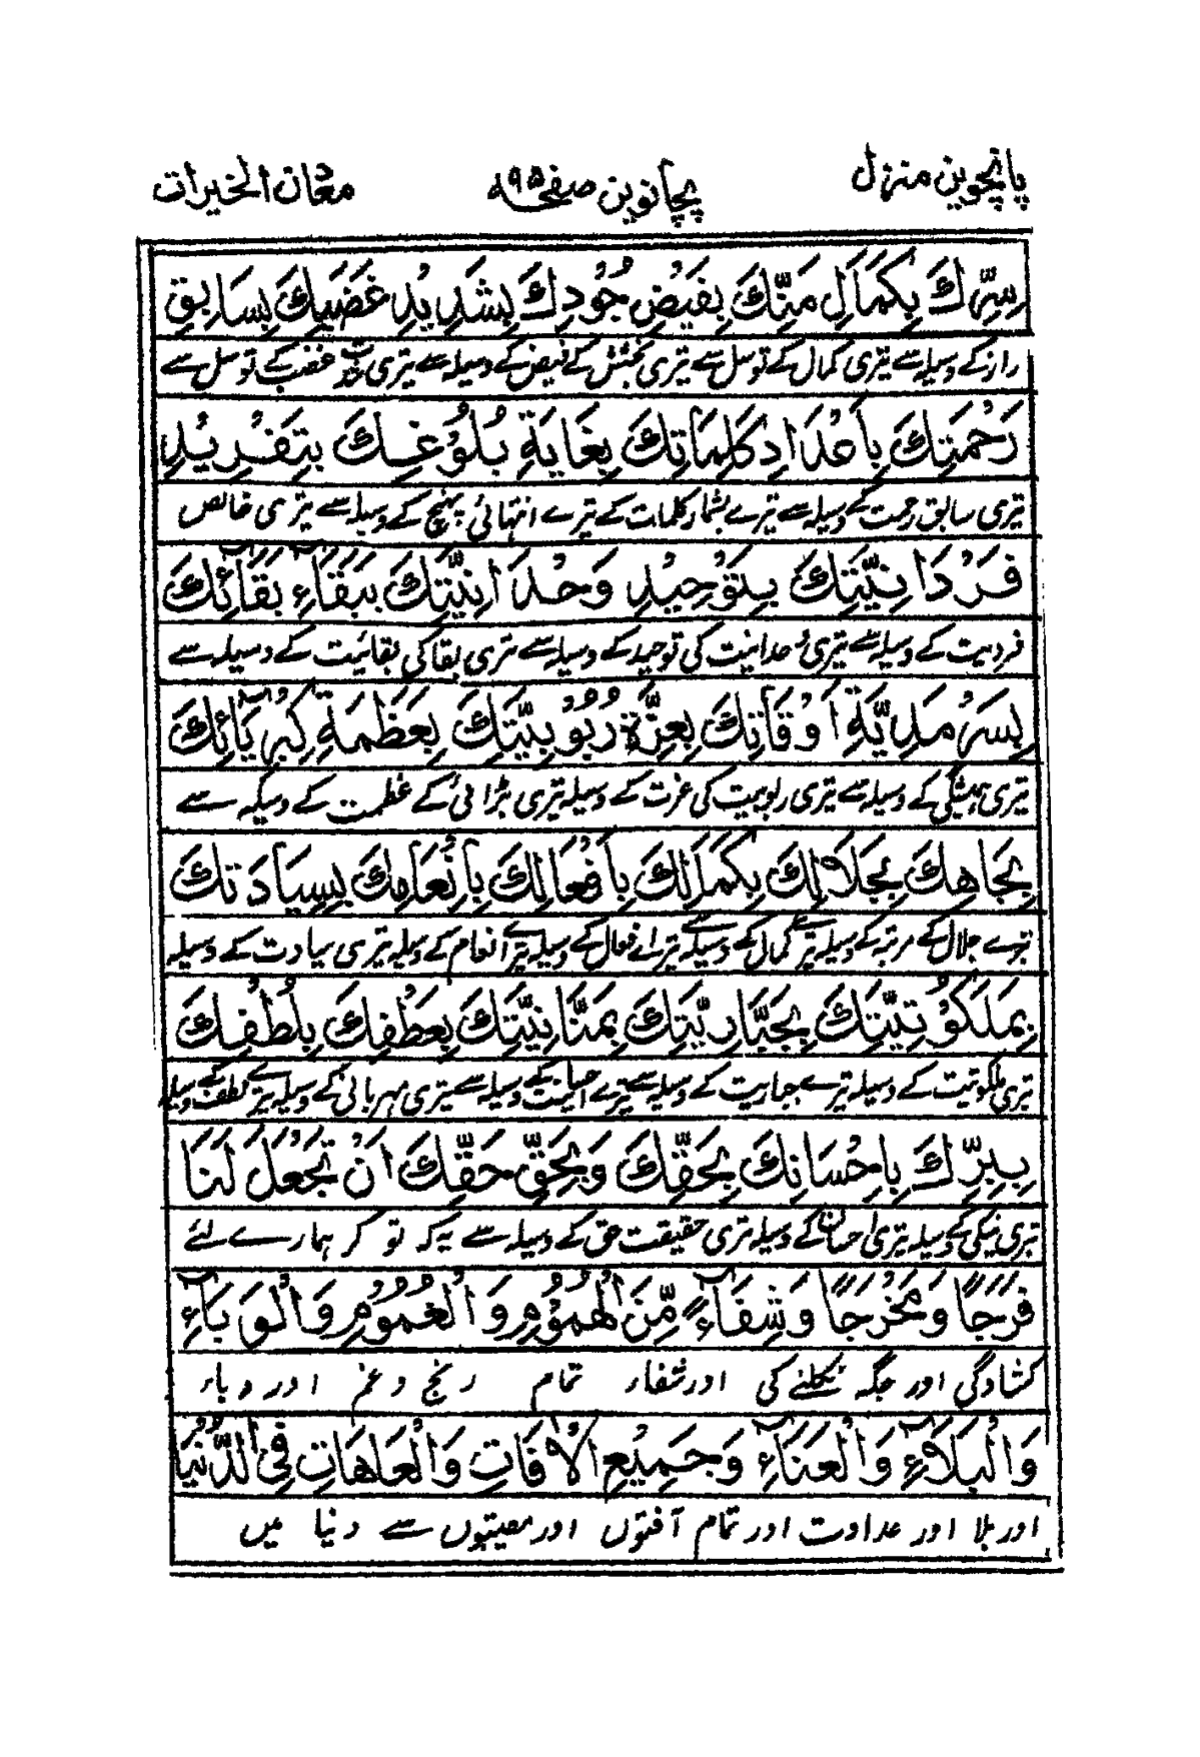 پانچویں منزل پچانویں صفحہ ۹۵ معدن الخیرات
سِرِّكَ بِكَمَالِ مَنِّكَ بِفَيْضِ جُوْدِكَ بِشَدِيْدِ غَضَبِكَ بِسَابِقِ
راز کے وسیلہ سے تیری کمال کے توسل سے تیری بخشش کے فیض کے وسیلہ سے تیری غضب کے توسل سے
رَحْمَتِكَ بِاَعْدَادِ كَلِمَاتِكَ بِغَايَةِ بُلُوْغِكَ بِتَفْرِيْدِ
تیری سابق رحمت کے وسیلہ سے تیرے بیشمار کلمات کے تیرے انتہائی پہنچ کے وسیلہ سے تیری خالص
فَرْدَانِيَّتِكَ بِتَوْحِيْدِ وَحْدَانِيَّتِكَ بِبَقَآءِ بَقَآئِكَ
فردیت کے وسیلہ سے تیری وحدانیت کی توحید کے وسیلہ سے تری بقا کی بقائیت کے وسیلہ سے
بِسَرْمَدِيَّةِ اَوْقَاتِكَ بِعِزَّةِ رُبُوْبِيَّتِكَ بِعَظَمَةِ كِبْرِيَآئِكَ
تیری ہمیشگی کے وسیلہ سے تیری ربوبیت کی عزت کے وسیلہ تیری بڑائی کے عظمت کے وسیلہ سے
بِجَاهِكَ بِجَلَالِكَ بِكَمَالِكَ بِاَفْعَالِكَ بِاَنْعَامِكَ بِسِيَادَتِكَ
ترے جلال کے مرتبہ کے وسیلہ تیرے کمال کے وسیلہ سے تیرے افعال کے وسیلے تیرے انعام کے وسیلہ تیری سیادت کے وسیلہ
بِمَلَكُوْتِيَّتِكَ بِجَبَّارِيَّتِكَ بِمَنَّانِيَّتِكَ بِعَطْفِكَ بِلُطْفِكَ
تیری ملکوتیت کے وسیلہ ترے جباریت کے وسیلہ سے تیرے احسانیت کے وسیلہ سے تیری مہربانی کے وسیلہ تیرے لطف کے وسیلہ
بِبِرِّكَ بِاِحْسَانِكَ بِحَقِّكَ وَبِحَقِّ حَقِّكَ اَنْ تَجْعَلَ لَنَا
تیری نیکی کے وسیلہ تیری احسان کے وسیلہ تری حقیقت حق کے وسیلہ سے یہ کہ تو کر ہمارے لئے
فَرَجًا وَمَخْرَجًا وَشِفَآءً مِّنَ الْهُمُوْمِ وَالْغُمُوْمِ وَالْوَبَآءِ
کشادگی اور جگہ نکلنے کی اور شفار تمام رنج و غم اور وباء
وَالْبَلَآءِ وَالْعَنَآءِ وَجَمِيْعِ الْاٰفَاتِ وَالْعَاهَاتِ فِى الدُّنْيَا
اور بلا اور عداوت اور تمام آفتوں اور مصیبتوں سے دنیا میں